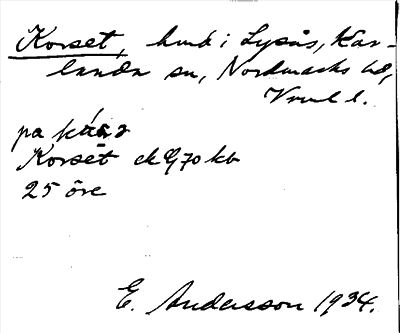 Korset, hmd i Lysås, Kar-
landa sn, Nordmarks hd,
Vrml l.
på
Korset ek 9/70 kb
25 öre
E. Andersson 1934.